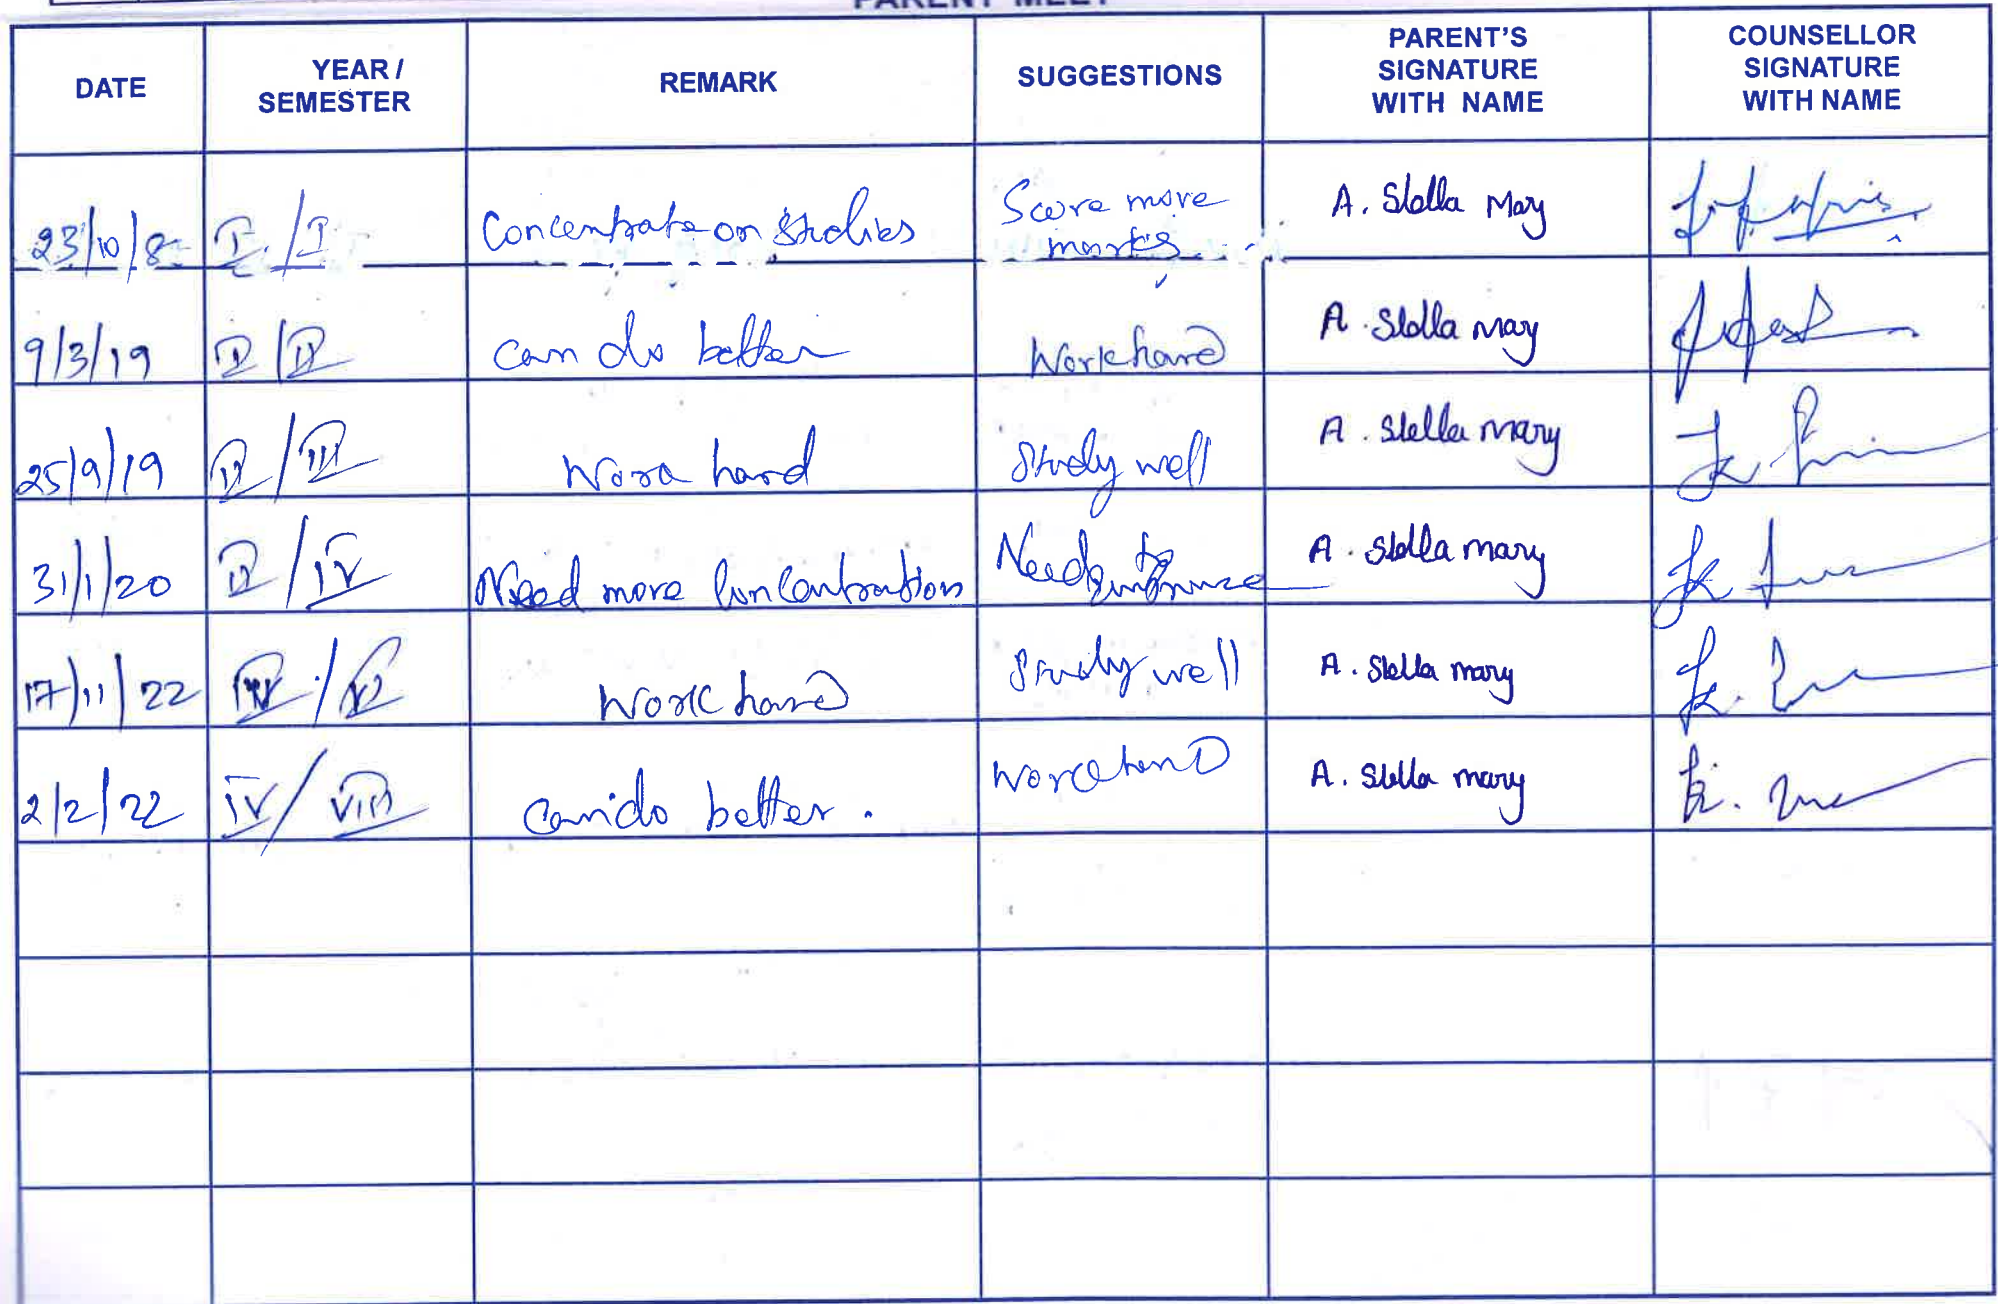 PARENT MEET
DATE YEAR / SEMESTER REMARK SUGGESTIONS PARENT'S SIGNATURE WITH NAME COUNSELLOR SIGNATURE WITH NAME
23/10/8 I/I Concentrate on Studies Score more marks A. Stella Mary
9/3/19 I/II can do better Work hard A. Stella mary
25/9/19 II/III Work hard Study well A. Stella mary
31/1/20 II/IV Need more Concentration Need to A. Stella mary
17/11/22 Work hard Study well A. Stella mary
2/2/22 IV/VIII can do better. Work hard A. Stella mary